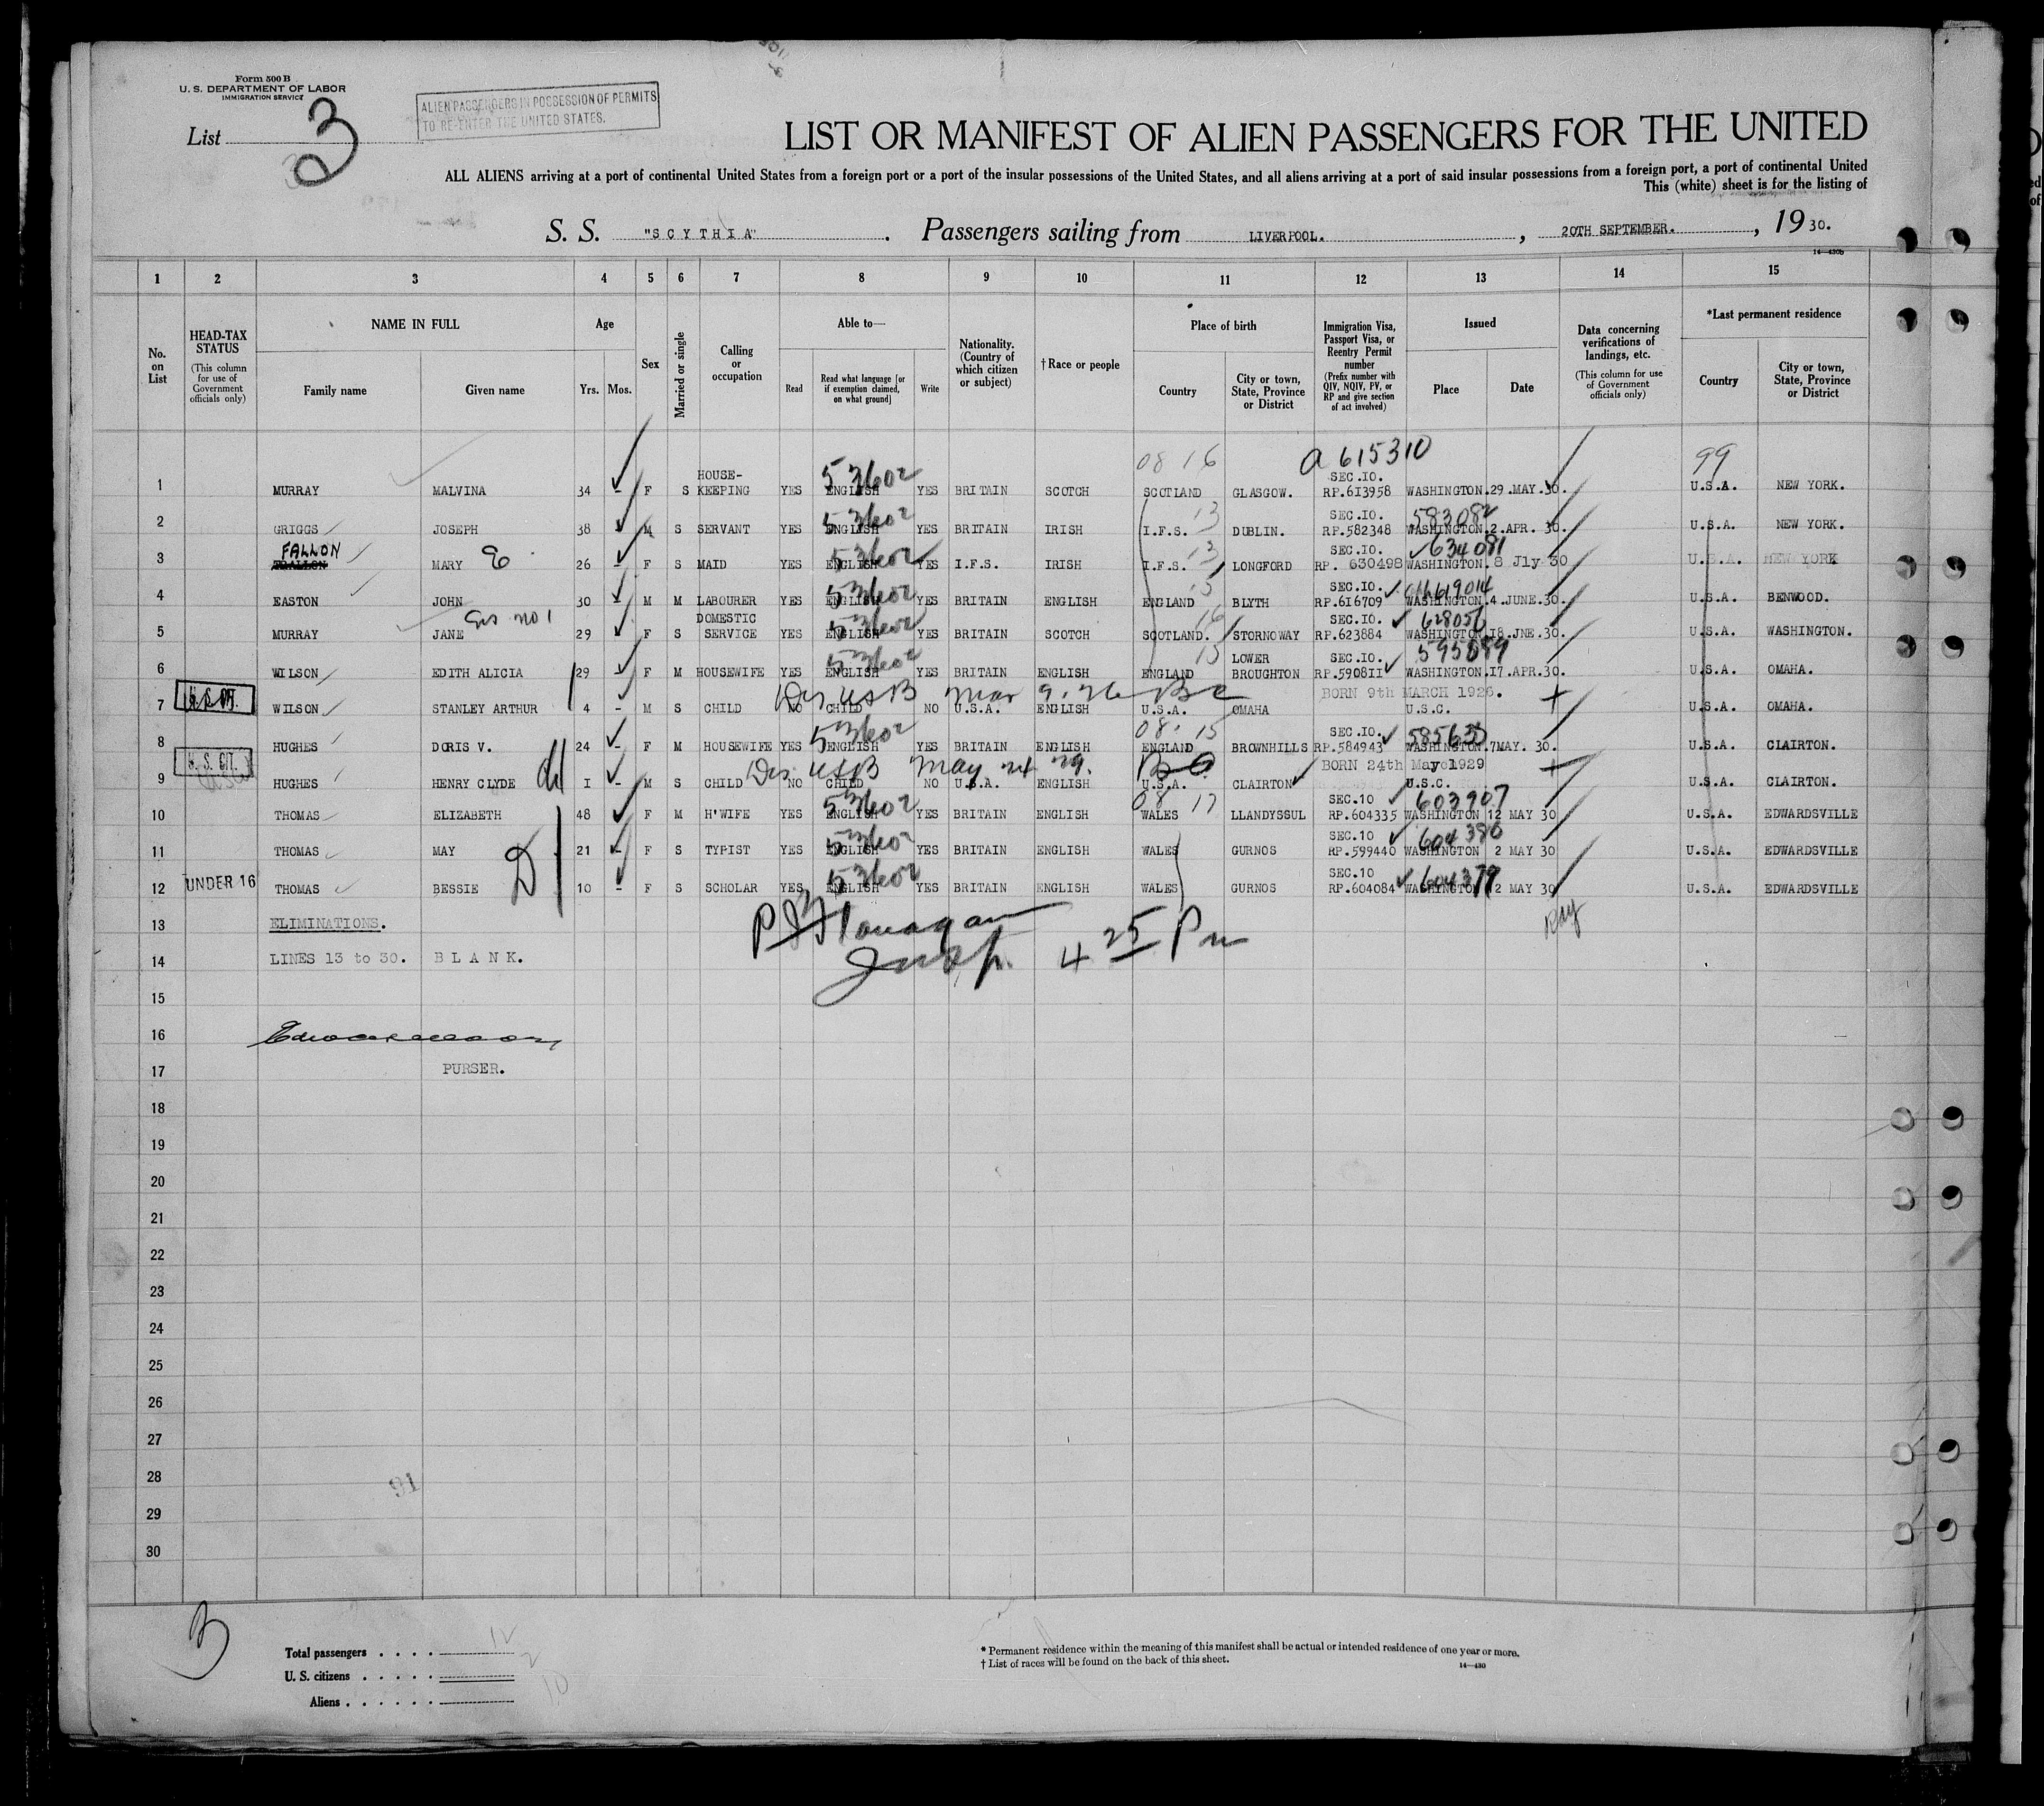 Form 500 B
U. S. DEPARTMENT OF LABOR
IMMIGRATION SERVICE
List 3
ALIEN PASSENGERS IN POSSESSION OF PERMITS
TO RE-ENTER THE UNITED STATES.
LIST OR MANIFEST OF ALIEN PASSENGERS FOR THE UNITED
ALL ALIENS arriving at a port of continental United States from a foreign port or a port of the insular possessions of the United States, and all aliens arriving at a port of said insular possessions from a foreign port, a port of continental United
This (white) sheet is for the listing of
S. S. "SCYTHIA". Passengers sailing from LIVERPOOL. , 20TH SEPTEMBER. , 19 30.
14—430b
1 2 3 4 5 6 7 8 9 10 11 12 13 14 15
No. on List
HEAD-TAX STATUS (This column for use of Government officials only)
NAME IN FULL Family name Given name
Age Yrs. Mos.
Sex
Married or single
Calling or occupation
Able to— Read Read what language [or if exemption claimed, on what ground] Write
Nationality. (Country of which citizen or subject)
†Race or people
Place of birth Country City or town, State, Province or District
Immigration Visa, Passport Visa, or Reentry Permit number (Prefix number with QIV, NQIV, PV, or RP and give section of act involved)
Issued Place Date
Data concerning verifications of landings, etc. (This column for use of Government officials only)
*Last permanent residence Country City or town, State, Province or District
08 16 a 615310 99
1 MURRAY MALVINA 34 - F S HOUSE-KEEPING YES 53602 ENGLISH YES BRITAIN SCOTCH SCOTLAND GLASGOW. SEC.IO. RP.6I3958 WASHINGTON.29.MAY.30. U.S.A. NEW YORK.
2 GRIGGS JOSEPH 38 M S SERVANT YES 53602 ENGLISH YES BRITAIN IRISH I.F.S. 13 DUBLIN. SEC.IO. RP.582348 583082 WASHINGTON.2.APR. 30. U.S.A. NEW YORK.
3 FALLON MARY E 26 - F S MAID YES 53602 ENGLISH YES I.F.S. IRISH I.F.S. 13 LONGFORD SEC.IO. RP. 630498 634081 WASHINGTON.8 Jly 30 U.S.A. NEW YORK
4 EASTON JOHN 30 - M M LABOURER YES 53602 ENGLISH YES BRITAIN ENGLISH ENGLAND 15 BLYTH SEC.IO. RP.6I6709 619014 WASHINGTON.4.JUNE.30. U.S.A. BENWOOD.
5 MURRAY JANE Sis no 1 29 - F S DOMESTIC SERVICE YES 53602 ENGLISH YES BRITAIN SCOTCH SCOTLAND. 16 STORNOWAY SEC.IO. RP.623884 628056 WASHINGTON.I8.JNE.30. U.S.A. WASHINGTON.
6 WILSON EDITH ALICIA 29 F M HOUSEWIFE YES 53602 ENGLISH YES BRITAIN ENGLISH ENGLAND 15 LOWER BROUGHTON SEC.IO. RP.5908II 595089 WASHINGTON.I7.APR.30. U.S.A. OMAHA.
7 U.S. CIT. WILSON STANLEY ARTHUR 4 - M S CHILD NO CHILD NO U.S.A. ENGLISH U.S.A. OMAHA BORN 9th MARCH 1926. U.S.C. U.S.A. OMAHA.
8 HUGHES DORIS V. 24 - F M HOUSEWIFE YES 53602 ENGLISH YES BRITAIN ENGLISH 08 15 ENGLAND BROWNHILLS SEC.IO. RP.584943 585635 WASHINGTON.7MAY. 30. U.S.A. CLAIRTON.
9 U. S. CIT. HUGHES HENRY CLYDE I - M S CHILD NO CHILD NO U.S.A. ENGLISH U.S.A. CLAIRTON BORN 24th May 1929 U.S.C. U.S.A. CLAIRTON.
10 THOMAS ELIZABETH 48 F M H'WIFE YES 53602 ENGLISH YES BRITAIN ENGLISH 08 17 WALES LLANDYSSUL SEC.10 RP.604335 603907 WASHINGTON 12 MAY 30 U.S.A. EDWARDSVILLE
11 THOMAS MAY 21 - F S TYPIST YES 53602 ENGLISH YES BRITAIN ENGLISH WALES GURNOS SEC.10 RP.599440 604380 WASHINGTON 2 MAY 30 U.S.A. EDWARDSVILLE
12 UNDER 16 THOMAS BESSIE 10 - F S SCHOLAR YES 53602 ENGLISH YES BRITAIN ENGLISH WALES GURNOS SEC.10 RP.604084 604379 WASHINGTON 12 MAY 30 U.S.A. EDWARDSVILLE
13 ELIMINATIONS.
P J Flanagan
14 LINES 13 to 30. BLANK.
Insp. 4 25 Pm
15
16
17 PURSER.
18
19
20
21
22
23
24
25
26
27
28
91
29
30
3
Total passengers 12
U. S. citizens 2
Aliens 10
* Permanent residence within the meaning of this manifest shall be actual or intended residence of one year or more.
† List of races will be found on the back of this sheet.
14—430